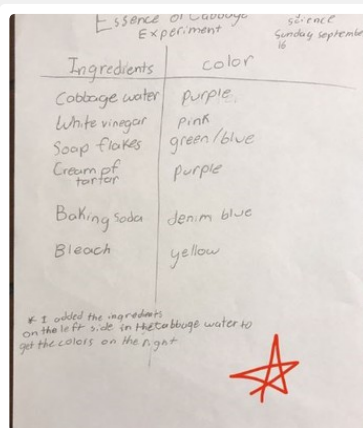 Essence of Cabbage science
Experiment Sunday september
16
Ingredients color
Cabbage water purple.
White vinegar pink
Soap flakes green/blue
Cream of
tartar purple
Baking soda denim blue
Bleach yellow
* I added the ingredients
on the left side in the cabbage water to
get the colors on the right